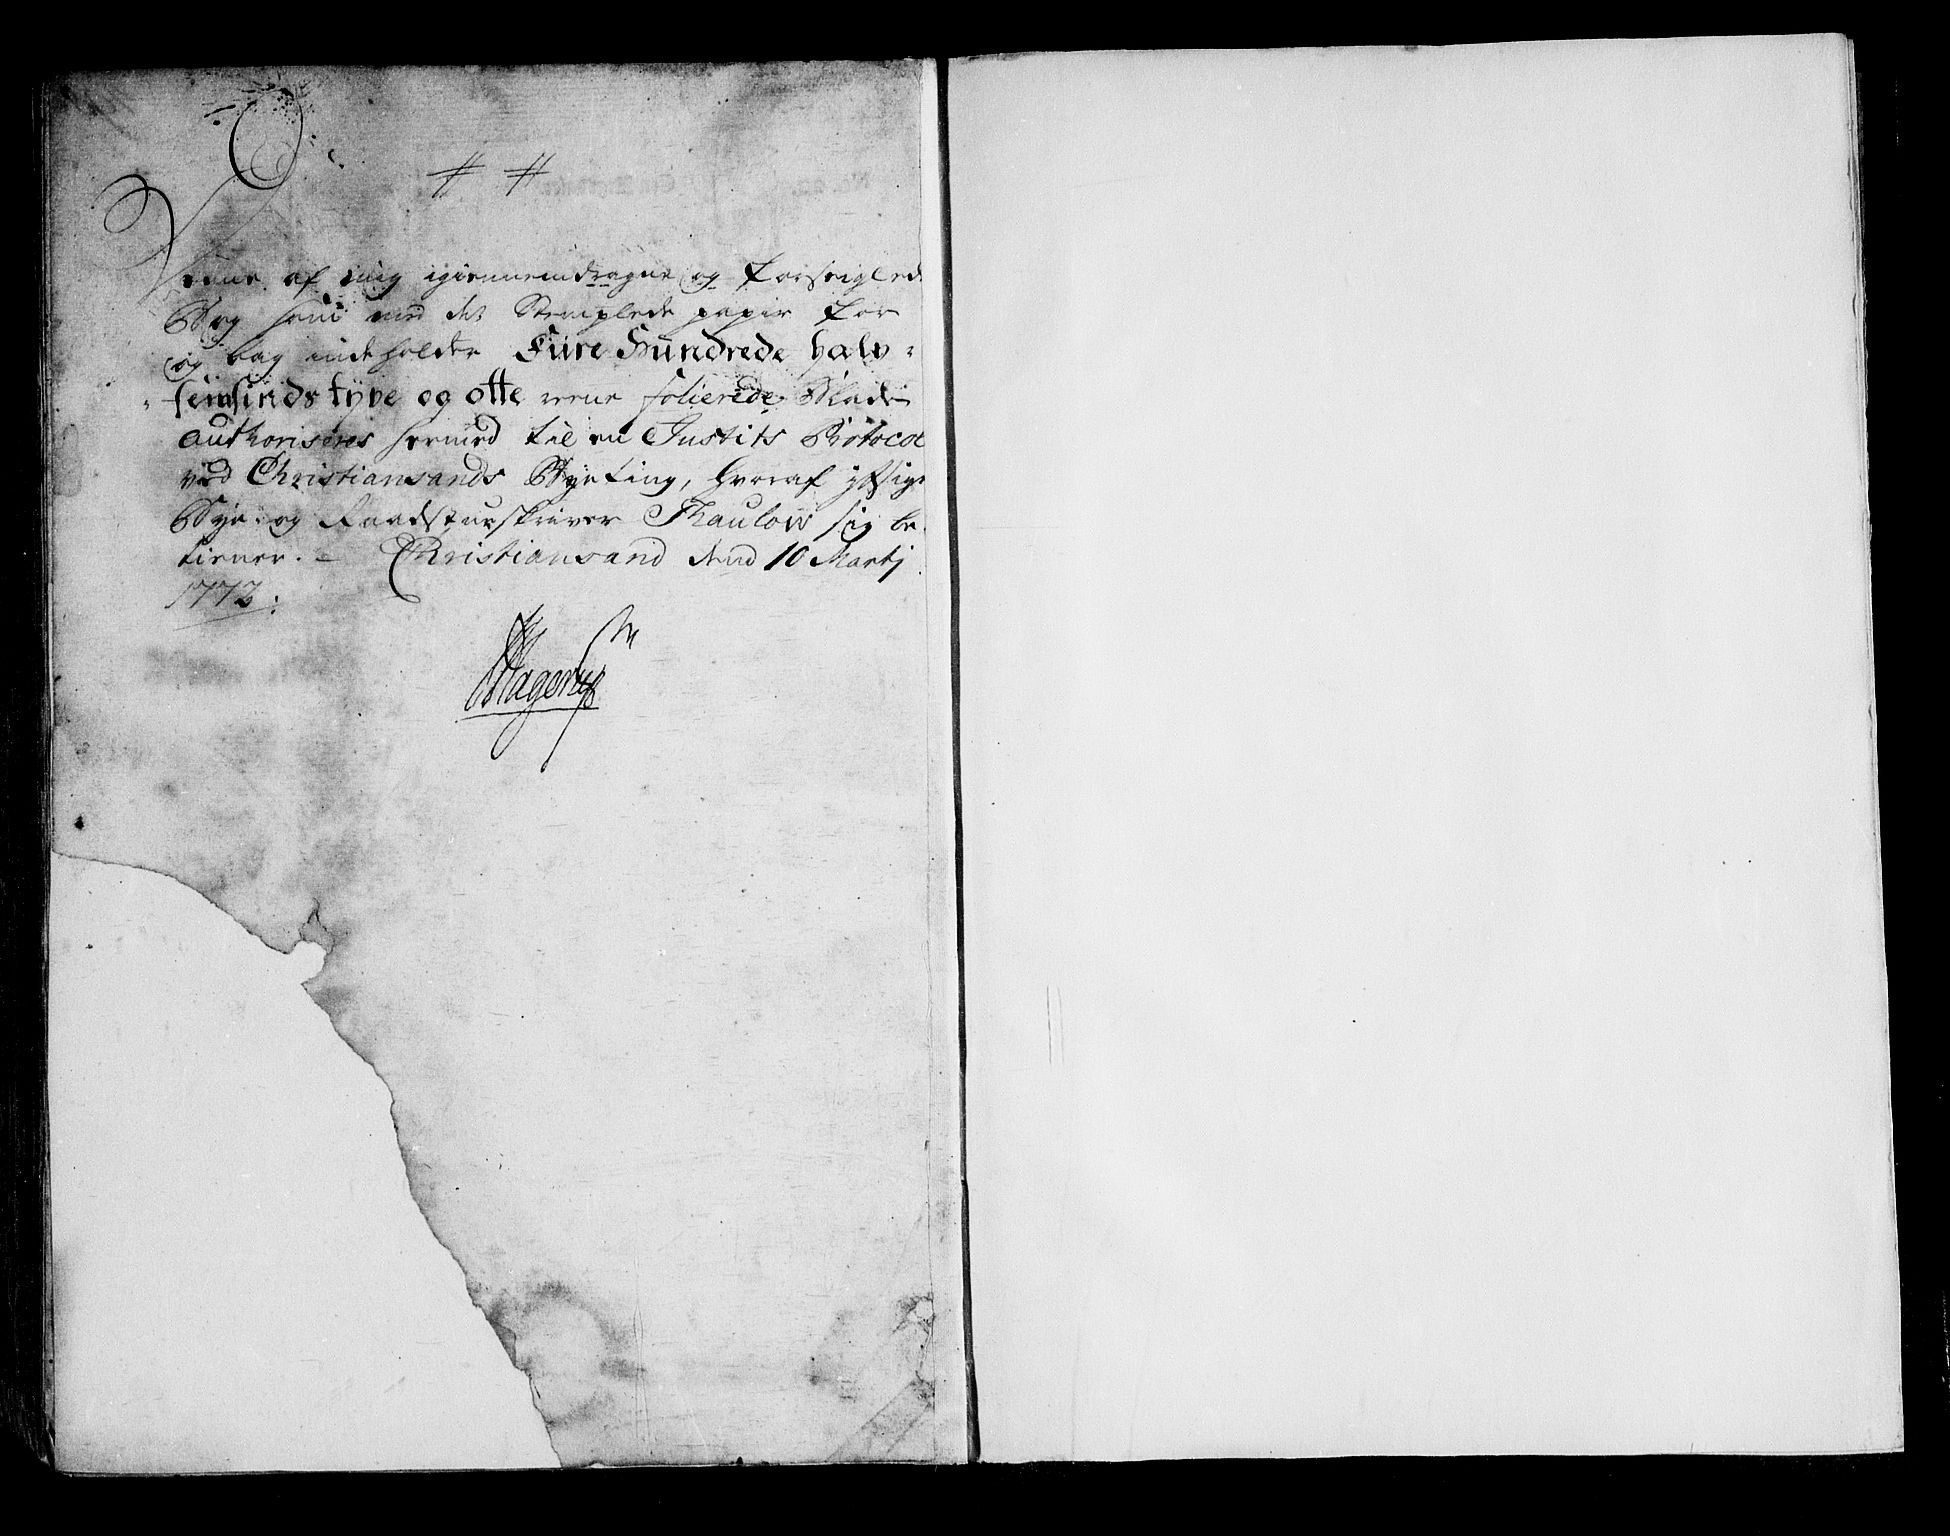 Denne af mig igiennemdragne og forseiglede
Bog som med det Stemplede papir for
og bag indeholder Fiire Hundrede halv-
femsinds tÿve og otte reene folierede Blade
authoriseres hermed til en Justits Protocol
ved Christiansands Bÿeting, hvoraf
Bÿe- og Raadstueskriver Thaulow sig be-
tiener. – Christiansand dend 10 Martj
1772.
Hagerup